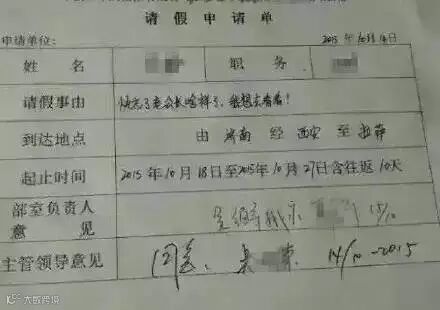 请假申请单
申请单位： 2015年10月14日
姓名 职务
请假事由 快忘了老公长啥样了，我想去看看！
到达地点 由 济南 经 西安 至 拉萨
起止时间 2015年10月18日至2015年10月27日含往返10天
部室负责人
意见 15/10
主管领导意见 同意、 14/10-2015
大数跨境